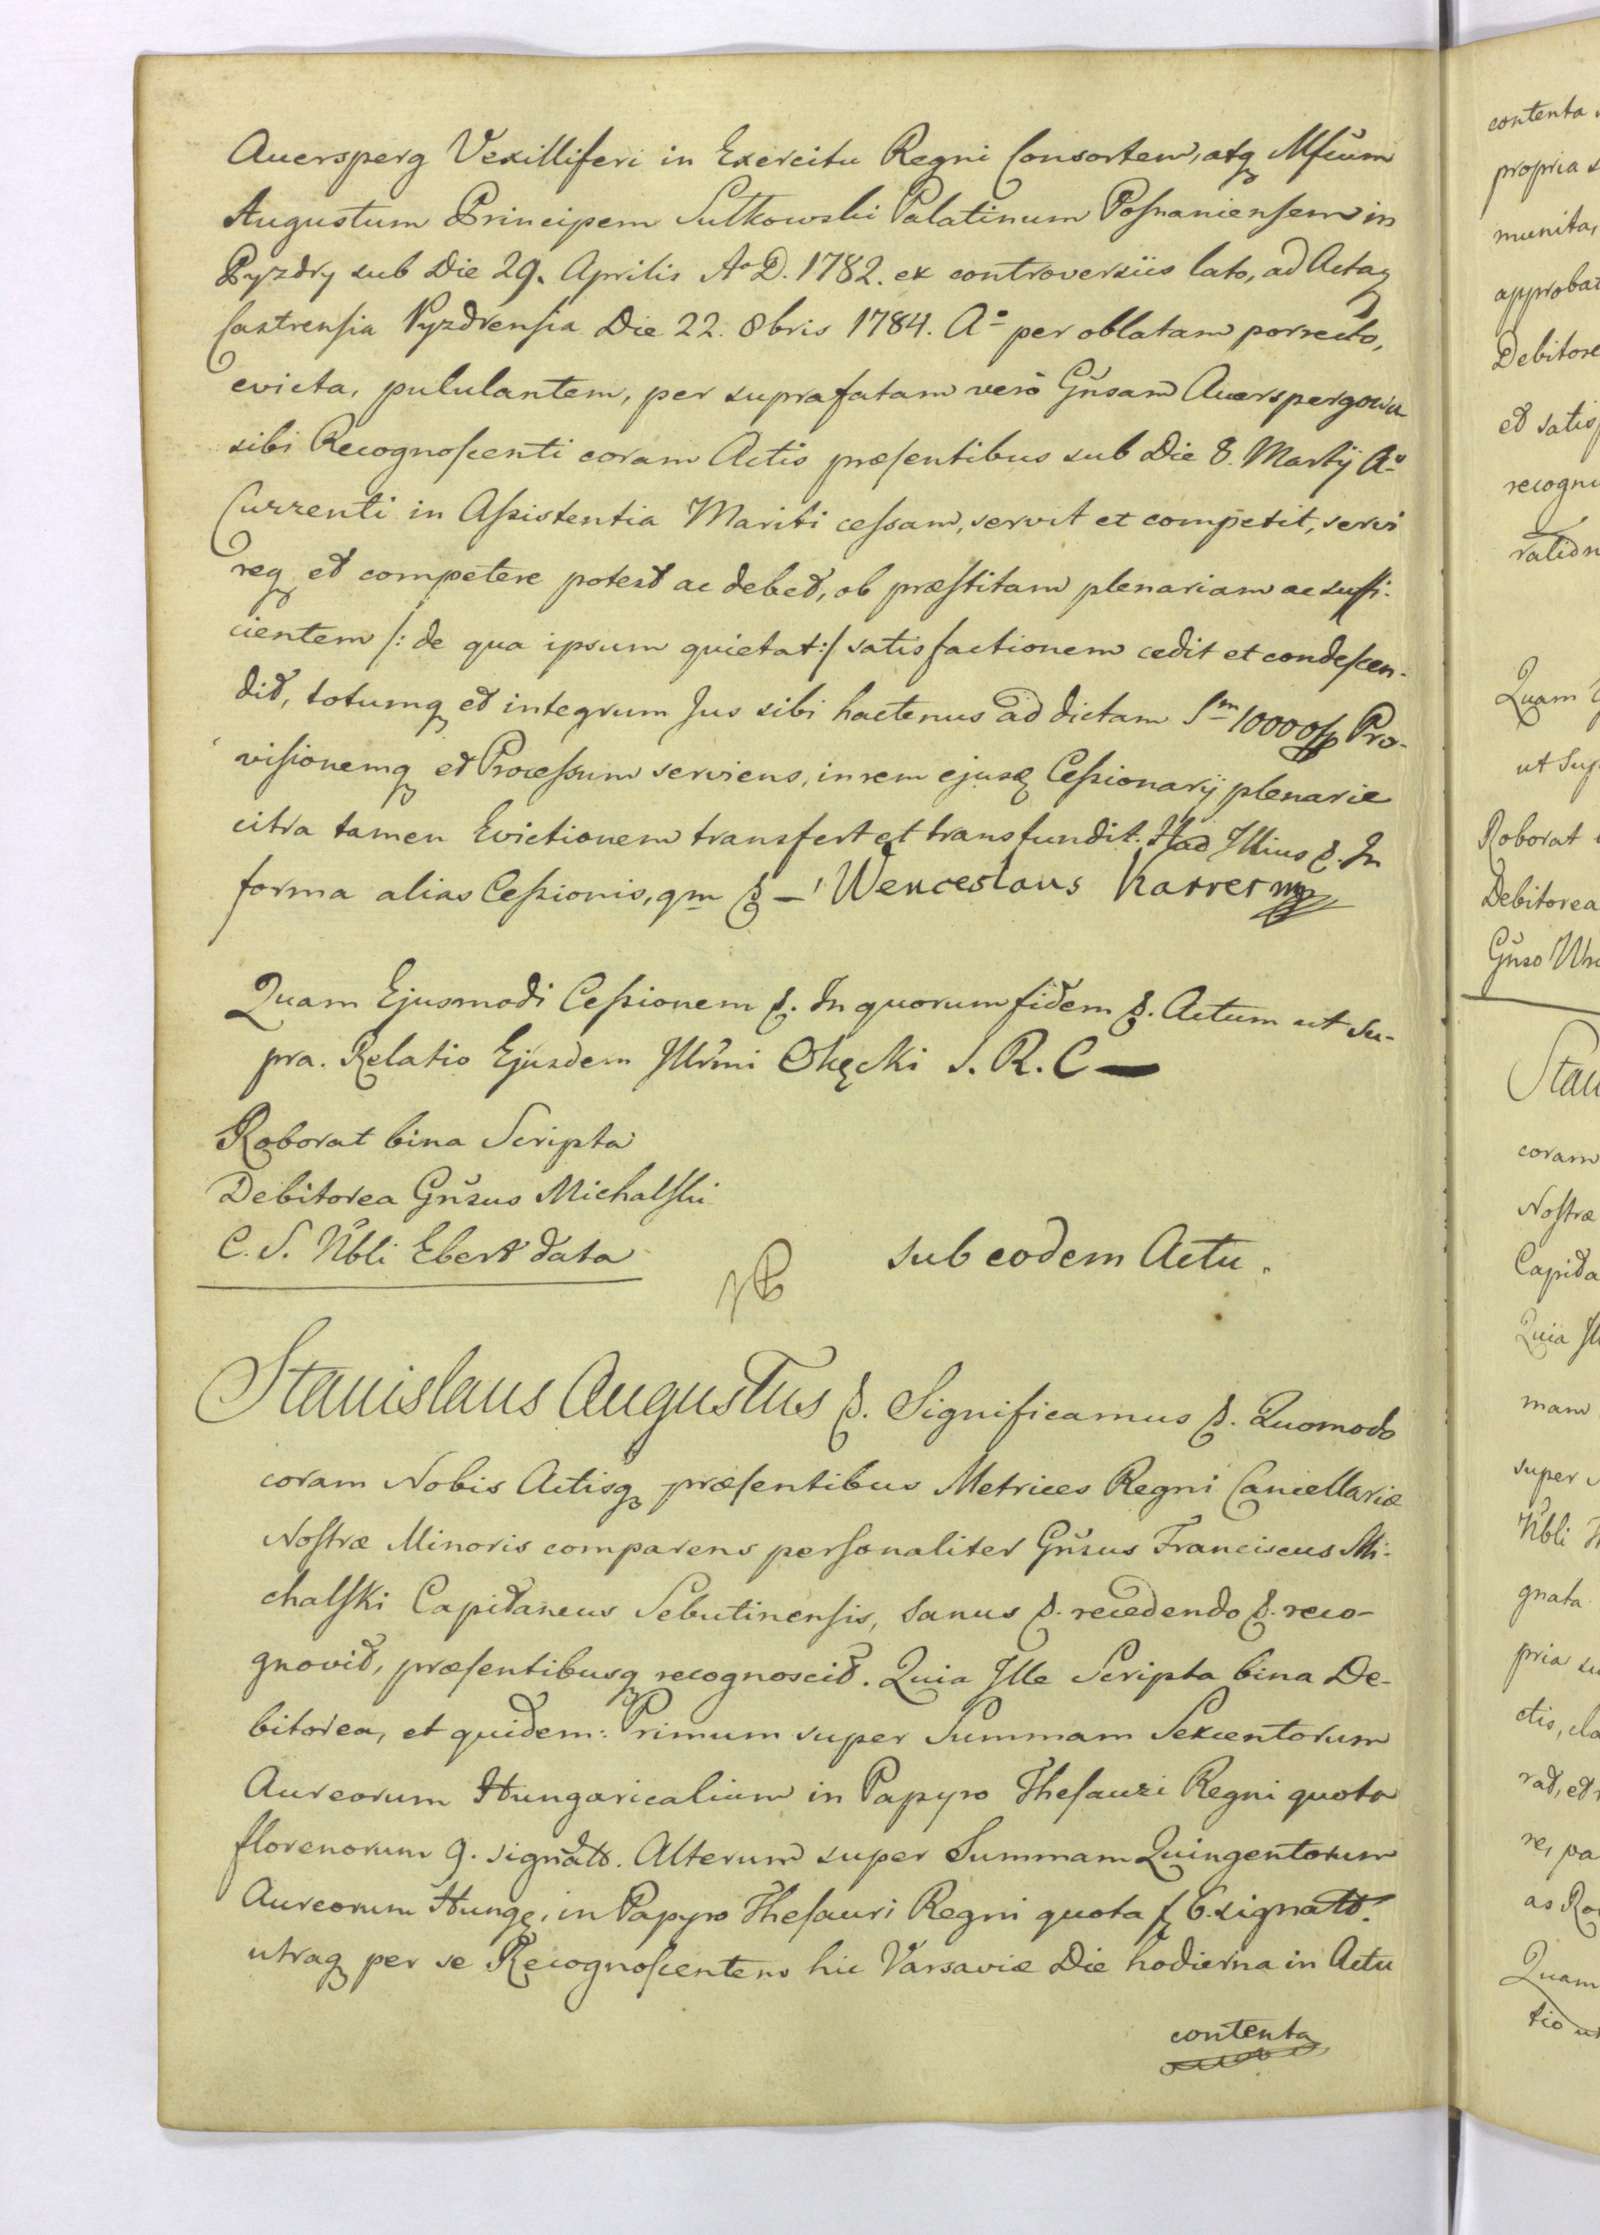 Auersperg Vexilliferi in Exercitu Regni Consortem, atq Mfcum
Augustum Principem Sułkowski Palatinum Posnaniensem in
Pyzdry sub Die 29. Aprilis Ao D. 1782. ex controversiis lato, ad Actaq
Castrensia Pyzdrensia Die 22. 8bris 1784. Ao per oblatam porrecto,
evicta, pululantem, per suprafatam verò Gnsam Auerspergowa
sibi Recognoscenti coram Actis præsentibus sub Die 8. Martij Ao
Currenti in Assistentia Mariti cessam, servit et competit, servi
req et competere potest ac debet, ob præstitam plenariam ac suffi-
cientem /: de qua ipsum quietat :/ satisfactionem cedit et condescen-
dit, totumq et integrum Jus sibi hactenus ad dictam Sm 10000 Pro-
visionemq et Processum serviens, in rem ejusd Cessionarij plenarie
citra tamen Evictionem transfert et transfundit. Illius &. In
forma alias Cessionis, qm & - Wenceslaus Karrer mp
Quam Ejusmodi Cessionem &. In quorum fidem &. Actum ut Su-
pra. Relatio Ejusdem Illrmi Okęcki S. R. C
Roborat bina Scripta
Debitorea Gnsus Michalski
C. S. Nbli Ebert data
sub eodem Actu.
Stanislaus Augustus &. Significamus &. Quomodo
coram Nobis Actisq præsentibus Metrices Regni Cancellariæ
Nostræ Minoris comparens personaliter Gnsus Franciscus Mi-
chalski Capitaneus Sebutinensis, sanus &. recedendo &. reco-
gnovit, præsentibusq recognoscit. Quia Ille Scripta bina De-
bitorea, et quidem: Primum super Summam Sexcentorum
Aureorum Hungaricalium in Papyro Thesauri Regni quota
florenorum 9. signato. Alterum super Summam Quingentorum
Aureorum Hung, in Papyro Thesauri Regni quota f 6. signato.
utraq per se Recognoscentem hic Varsaviæ Die hodierna in Actu
contenta
contenta
propria
munita,
Debitore
et satis
recogn
Quam
ut Sup
Roborat
Debitorea
Gnso
Stan
coram
Nostræ
Capita
Quia Il
mam
super
Nbli
gnata
pria su
ctis, cla
rat, et
re, pa
as Ro
Quam
tio ut